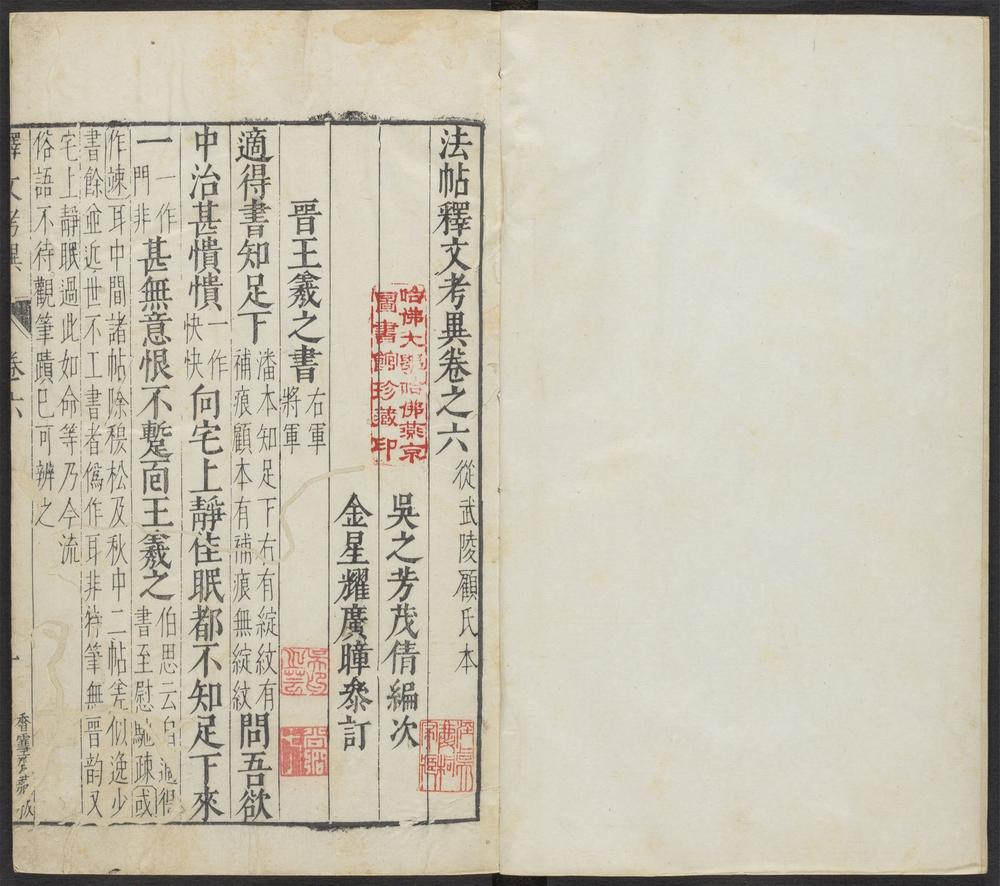 法帖釋文考異卷之六從武陵顧氏本
吳之芳茂倩編次
金星耀廣暐叅訂
哈佛大學哈佛燕京
圖書館珍藏印
晉王羲之書右軍
將軍
適得書知足下潘本知足下右有綻紋有
補痕顧本有補痕無綻紋問吾欲
中治甚憒憒一作
怏怏向宅上靜佳眠都不知足下來
一一作
門非甚無意恨不蹔面王羲之伯思云自適得
書至慰馳竦或
作竦耳中間諸帖除稷松及秋中二帖差似逸少
書餘並近世不工書者僞作耳非特筆無晉韵又
宅上靜眠過此如命等乃今流
俗語不待觀筆蹟已可辨之
釋文考異
卷六
一
香雪齋